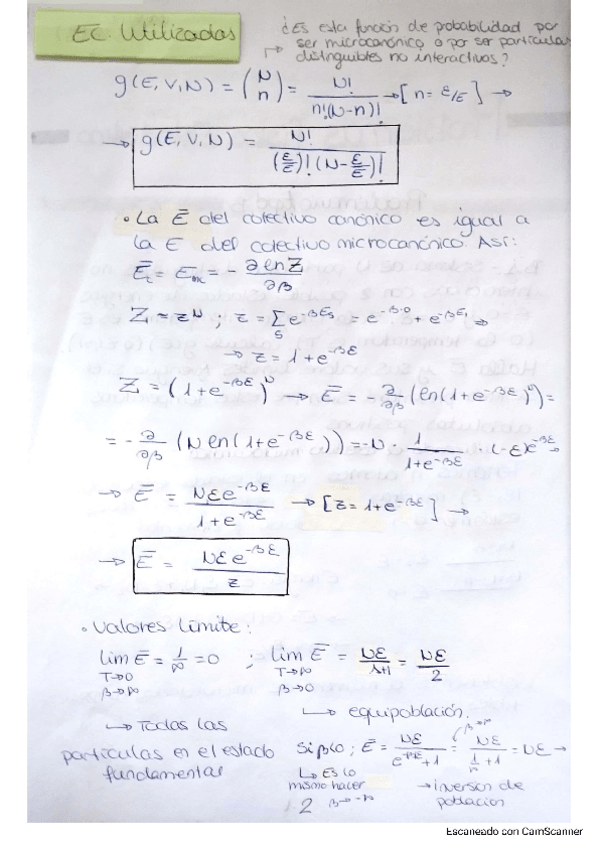 EC. Utilizadas
¿Es esta función de probabilidad por
ser microcanónico o por ser partículas
distinguibles no interactivas?
g(E, V, N) = (N n) = N! / n!(N-n)! → [n = ε/E] →
→ g(E, V, N) = N! / (ε/E)! (N - ε/E)!
• La Ē del colectivo canónico es igual a
la E del colectivo microcanónico. Así:
Ē_c = E_mc = - ∂ ln Z / ∂β
Z = z^N ; z = Σ_s e^{-βE_s} = e^{-β·0} + e^{-βE_1} ⇒
→ z = 1 + e^{-βε}
Z = (1 + e^{-βε})^N → Ē = ∂/∂β (ln(1 + e^{-βε})^N) =
= - ∂/∂β (N ln(1 + e^{-βε})) = -N · 1 / 1 + e^{-βε} · (-ε) e^{-βε} →
→ Ē = Nε e^{-βε} / 1 + e^{-βε} → [z = 1 + e^{-βε}] →
→ Ē = Nε e^{-βε} / z
• Valores límite:
lim Ē = 1/∞ = 0 ; lim Ē = Nε / 1+1 = Nε / 2
T→0 T→∞
β→∞ β→0
↳ Todas las
partículas en el estado
fundamental
↳ equipoblación.
β→∞
Si β<0 ; Ē = Nε / e^{-βε} + 1 = Nε / 1/∞ + 1 = Nε →
↳ Es lo
mismo hacer
β→-∞
→ inversión de
población
2
Escaneado con CamScanner